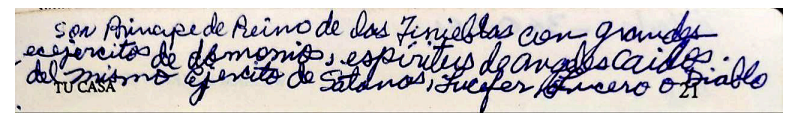 son Principe de Reino de las Tinieblas con grandes
ecejercitos de domonios, espiritus de angeles caidos.
del mismo ejercito de Satanas, Lucefer, Lucero o Diablo
TU CASA 21